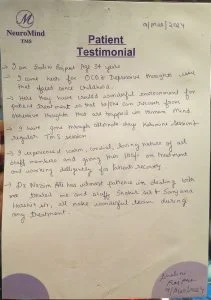 M
NeuroMind
TMS
9/Mar/2024
Patient
Testimonial
→ I am Age 34 years
→ I came here for OCD & Depressive thoughts
that faced since childhood.
→ Here they have created wonderful environment for
patient treatment so that before can recover from
obsessive thoughts that are trapped in Human Mind.
→ I have gone through alternate day Ketamine Session &
regular TMS session
→ I experienced warm, loving nature of all
staff members and giving their 100% on treatment
and working diligently for Patient recovery
→ Dr Nazim Ali has utmost patience in dealing with
treated me and staff
all make wonderful team during
my treatment.
9/Mar/2024